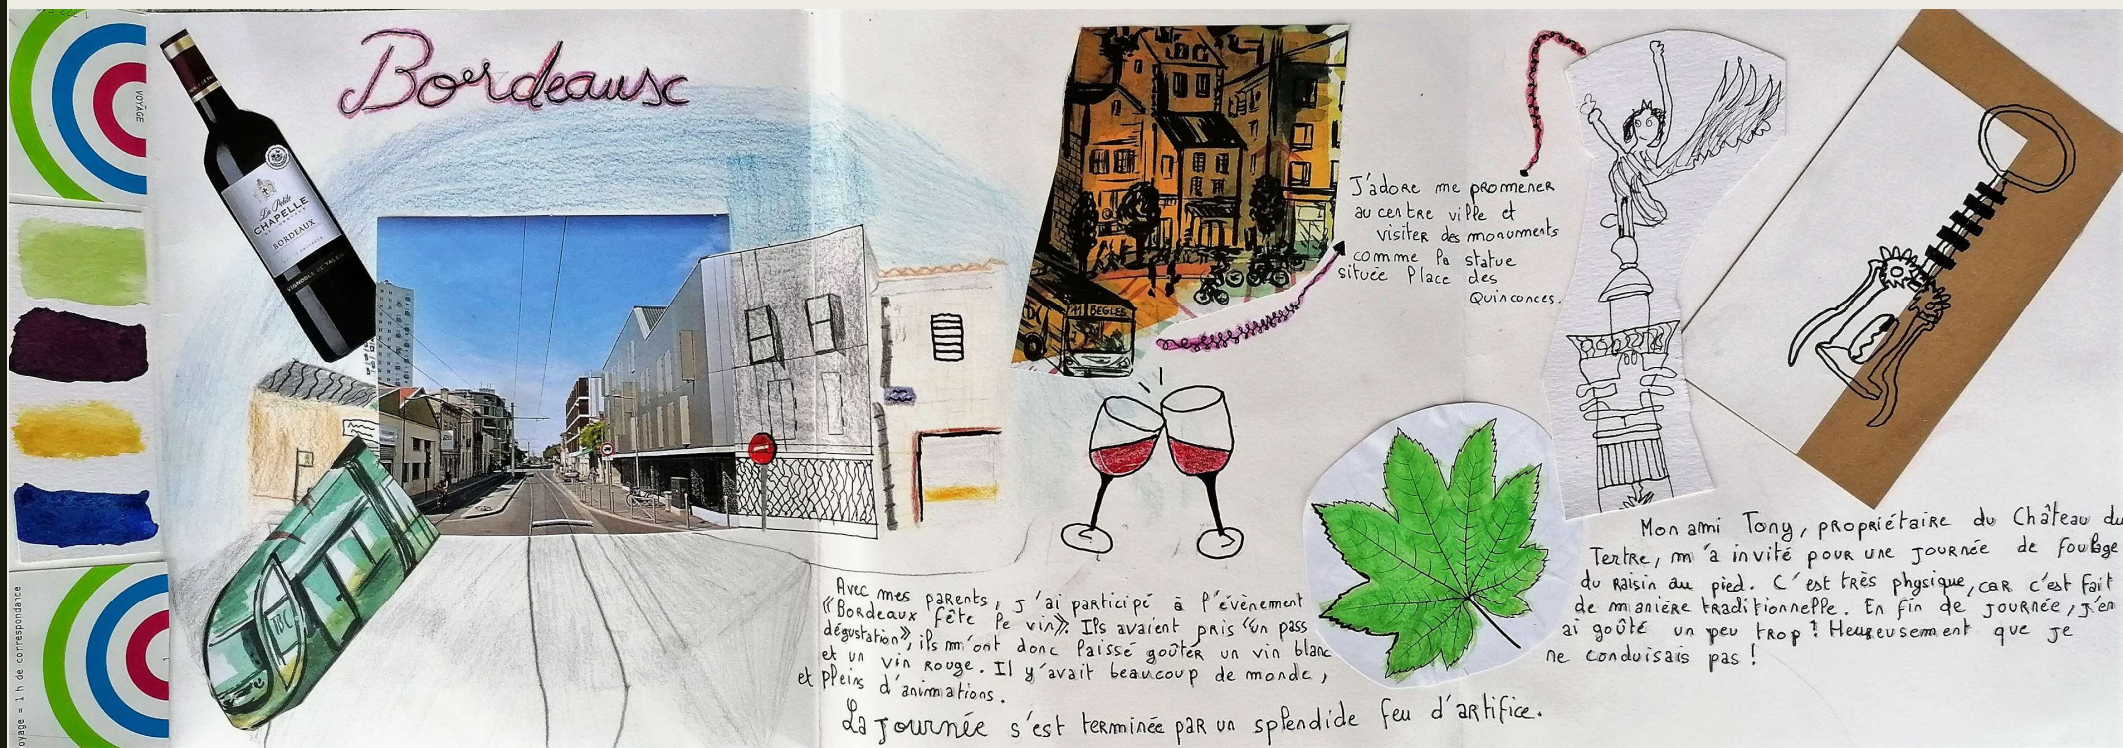 VOYAGE
Bordeaux
La Petite
CHAPELLE
BORDEAUX
11 BEGLES
J'adore me promener
au centre ville et
visiter des monuments
comme la statue
située Place des
Quinconces.
Avec mes parents, j'ai participé à l'évènement
«Bordeaux fête le vin». Ils avaient pris "un pass
dégustation", ils m'ont donc laissé goûter un vin blanc
et un vin rouge. Il y'avait beaucoup de monde,
et pleins d'animations.
La journée s'est terminée par un splendide feu d'artifice.
Mon ami Tony, propriétaire du Château du
Tertre, m'a invité pour une journée de foulage
du raisin au pied. C'est très physique, car c'est fait
de manière traditionnelle. En fin de journée, j'en
ai goûté un peu trop ! Heureusement que je
ne conduisais pas !
oyage = 1 h de correspondance